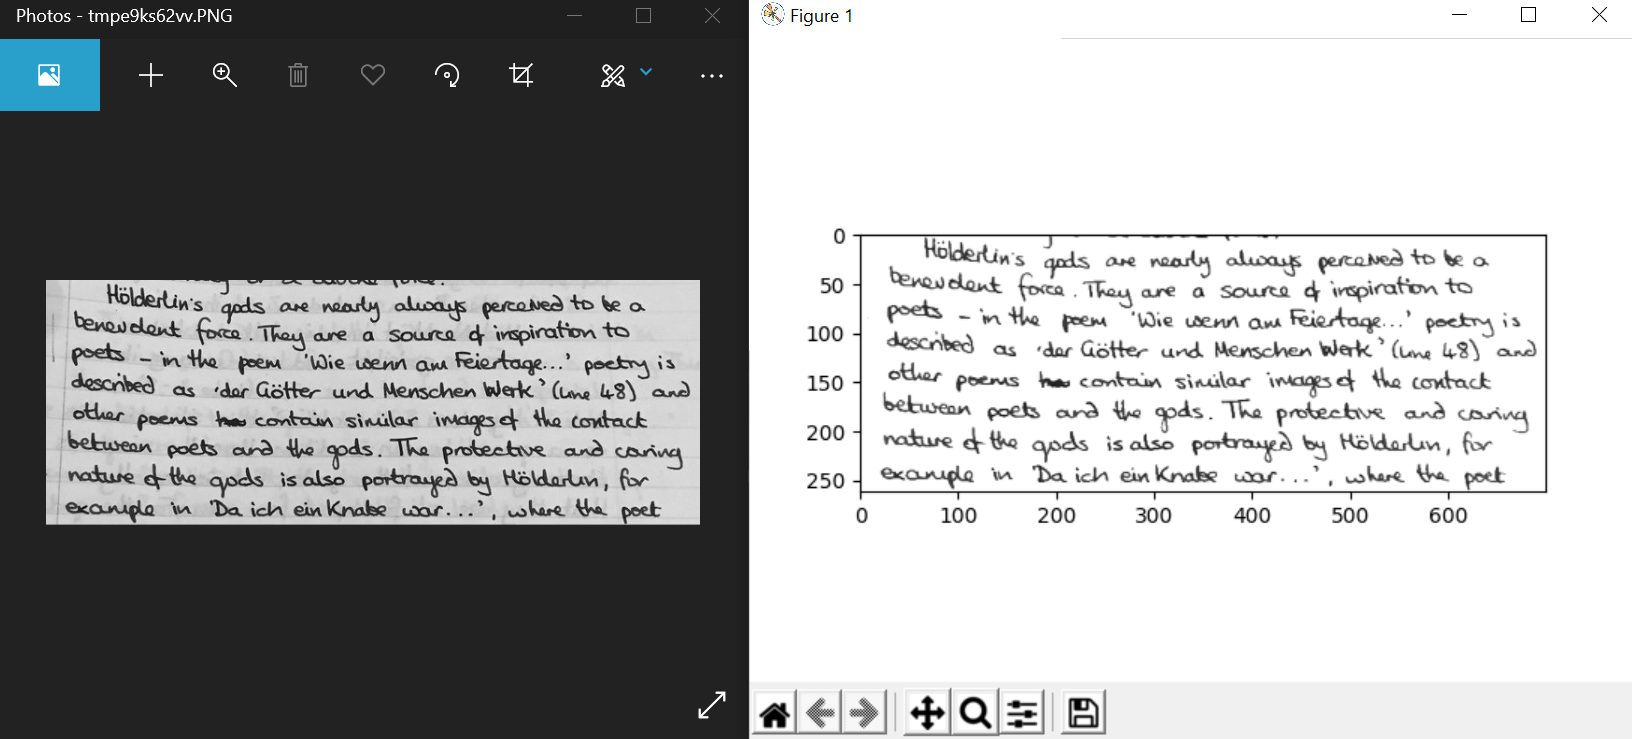 Photos - tmpe9ks62vv.PNG
Hölderlin's gods are nearly always perceived to be a
benevolent force. They are a source of inspiration to
poets - in the poem 'Wie wenn am Feiertage...' poetry is
described as 'der Götter und Menschen Werk' (line 48) and
other poems contain similar images of the contact
between poets and the gods. The protective and caring
nature of the gods is also portrayed by Hölderlin, for
example in 'Da ich ein Knabe war...', where the poet
Figure 1
0
50
100
150
200
250
Hölderlin's gods are nearly always perceived to be a
benevolent force. They are a source of inspiration to
poets - in the poem 'Wie wenn am Feiertage...' poetry is
described as 'der Götter und Menschen Werk' (line 48) and
other poems contain similar images of the contact
between poets and the gods. The protective and caring
nature of the gods is also portrayed by Hölderlin, for
example in 'Da ich ein Knabe war...', where the poet
0 100 200 300 400 500 600